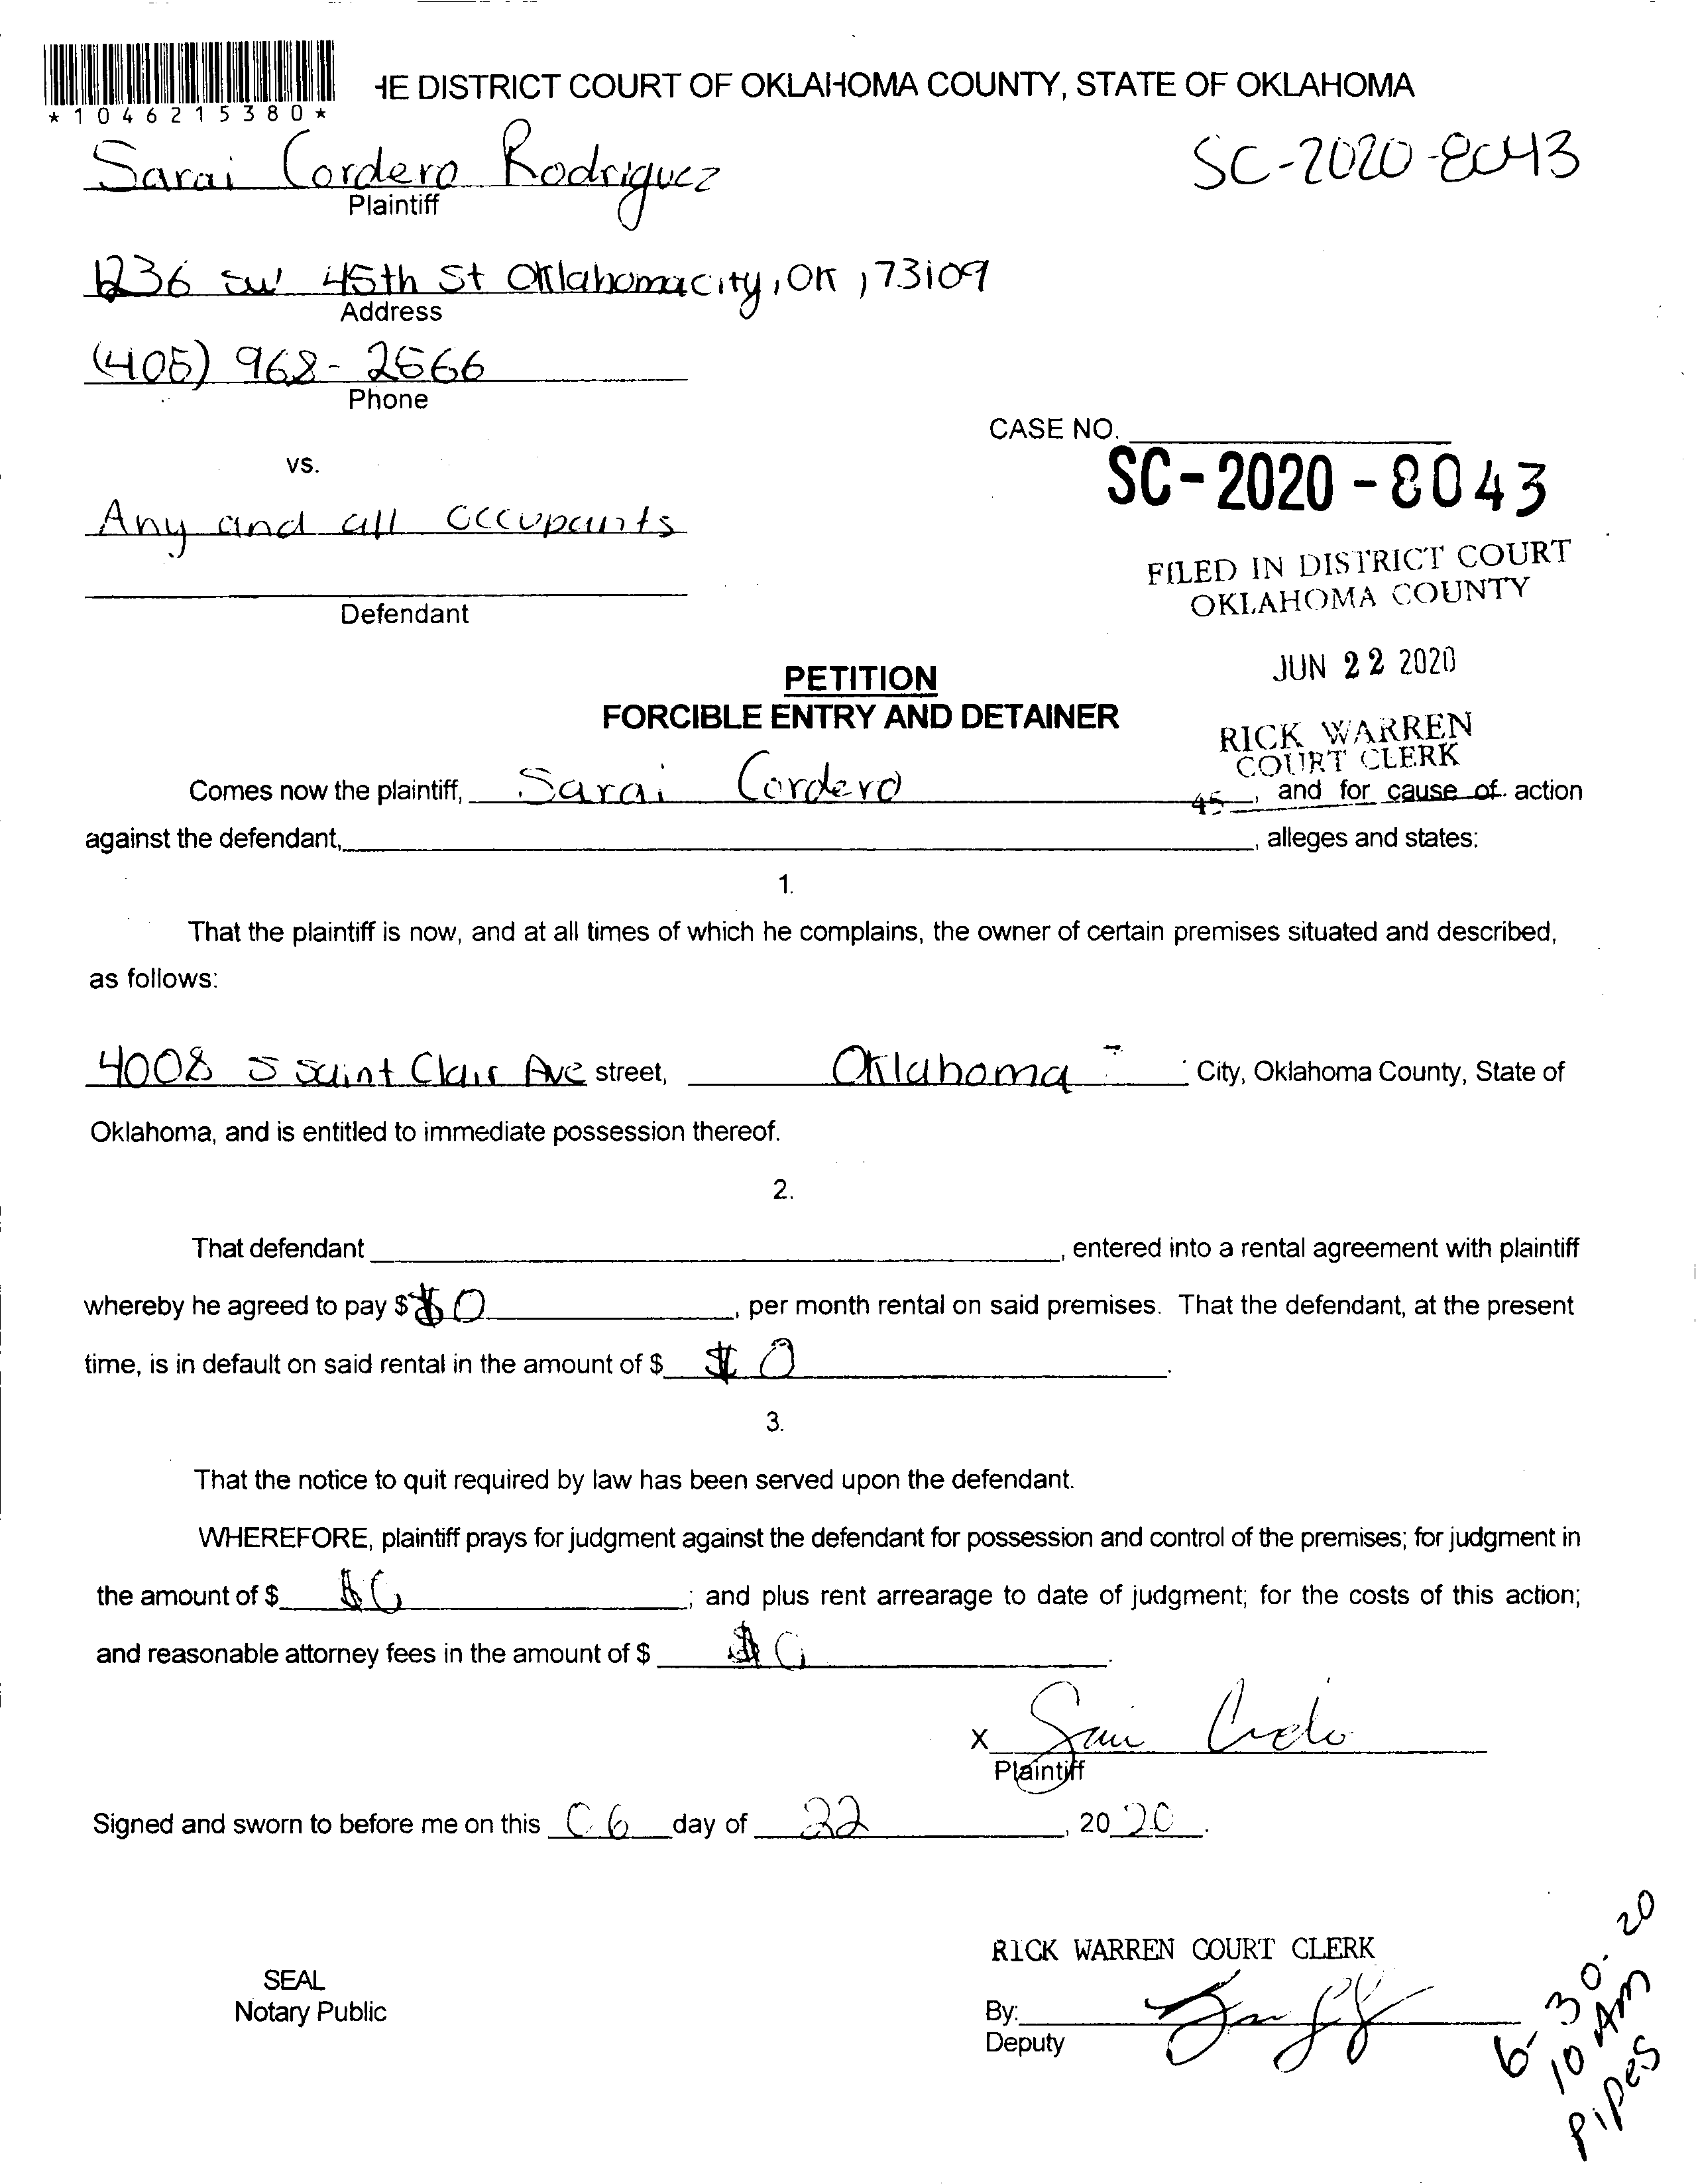 *1046215380*
HE DISTRICT COURT OF OKLAHOMA COUNTY, STATE OF OKLAHOMA
Sarai Cordero Rodriguez
SC-2020-8043
Plaintiff
1236 SW 45th St Oklahomacity, OK, 73109
Address
(405) 968-2566
Phone
CASE NO.
SC-2020-8043
vs.
Any and all occupants
Defendant
FILED IN DISTRICT COURT
OKLAHOMA COUNTY
JUN 22 2020
PETITION
FORCIBLE ENTRY AND DETAINER
RICK WARREN
COURT CLERK
45
Comes now the plaintiff, Sarai Cordero, and for cause of action
against the defendant, , alleges and states:
1.
That the plaintiff is now, and at all times of which he complains, the owner of certain premises situated and described,
as follows:
4008 S Saint Clair Ave street, Oklahoma City, Oklahoma County, State of
Oklahoma, and is entitled to immediate possession thereof.
2.
That defendant , entered into a rental agreement with plaintiff
whereby he agreed to pay $ $0, per month rental on said premises. That the defendant, at the present
time, is in default on said rental in the amount of $ $0.
3.
That the notice to quit required by law has been served upon the defendant.
WHEREFORE, plaintiff prays for judgment against the defendant for possession and control of the premises; for judgment in
the amount of $ $0; and plus rent arrearage to date of judgment; for the costs of this action;
and reasonable attorney fees in the amount of $ $0.
X Sarai Cordero
Plaintiff
Signed and sworn to before me on this 06 day of 22, 2020.
RICK WARREN COURT CLERK
SEAL
Notary Public
By:
Deputy
6-30-20
10 AM
Pipes